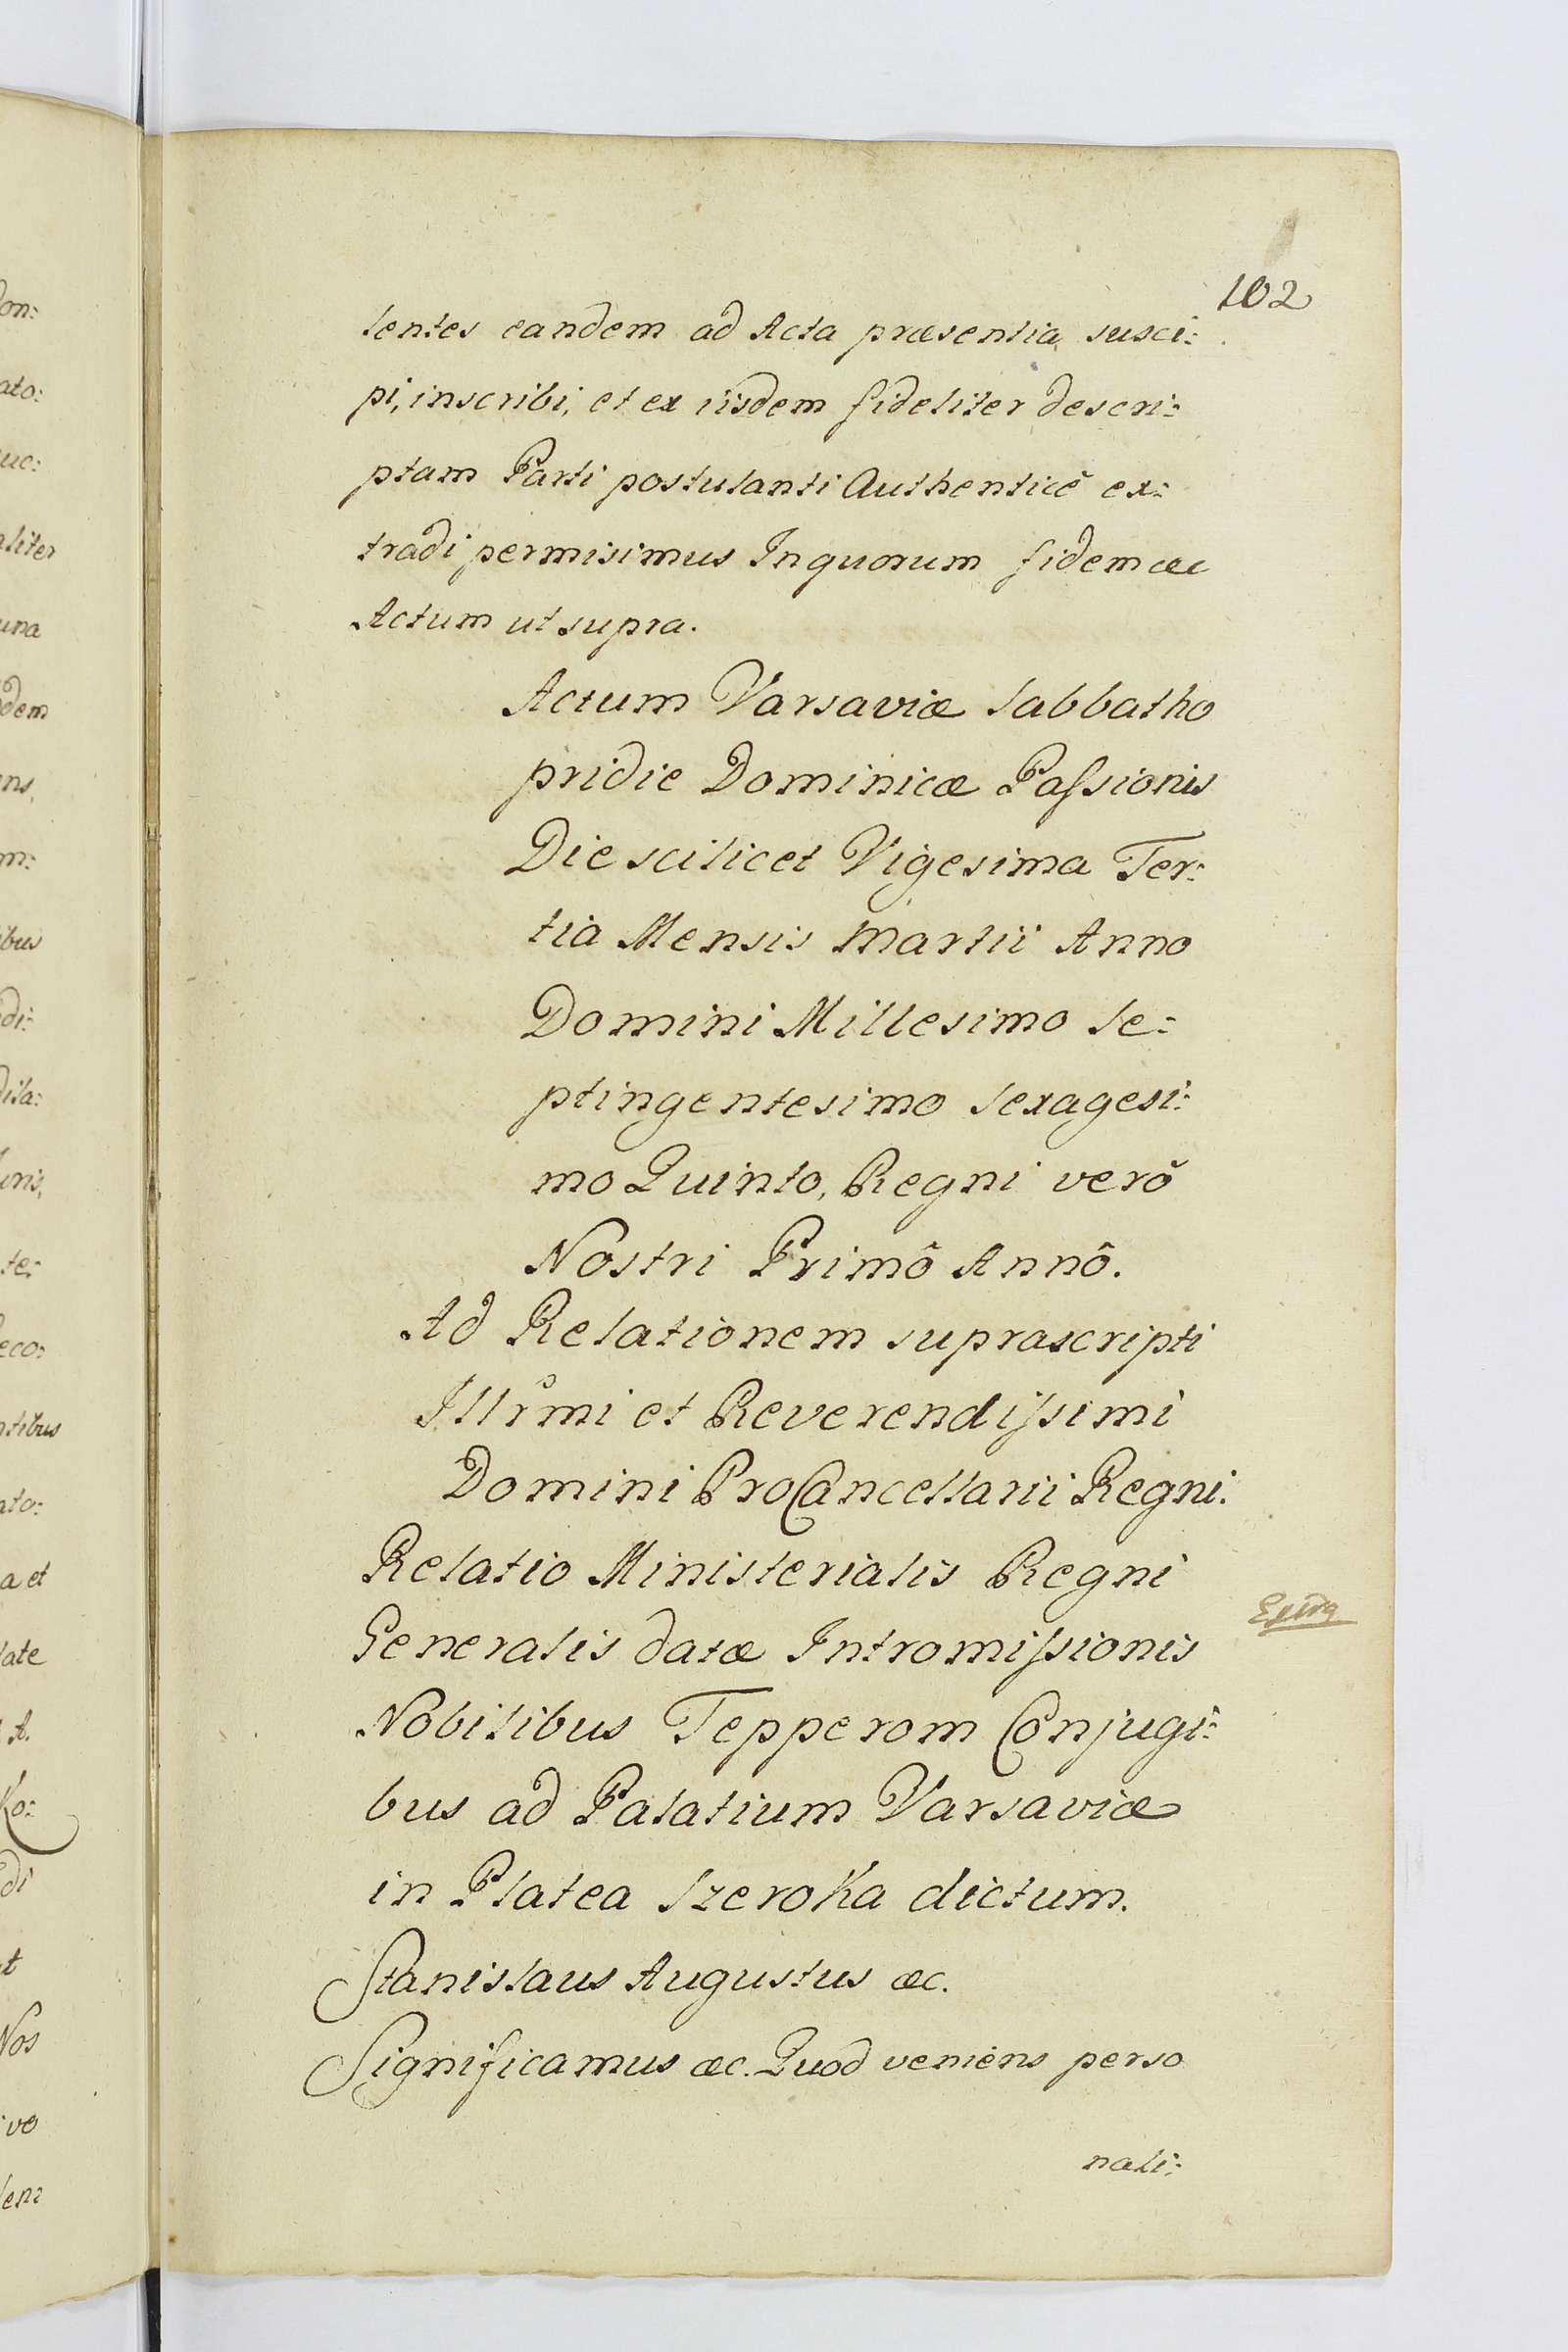 102
tentes eandem ad Acta præsentia susci:
pi, inscribi, et ex iisdem fideliter descri:
ptam Parti postulanti Authenticè ex:
tradi permisimus Inquorum fidem æc
Actum ut supra.
Actum Varsaviæ Sabbatho
pridie Dominicæ Passionis
Die scilicet Vigesima Ter:
tia Mensis Martii Anno
Domini Millesimo Se:
ptingentesimo Sexagesi:
mo Quinto, Regni verò
Nostri Primô Annô.
Ad Relationem suprascripti
Illrmi et Reverendissimi
Domini ProCancellarii Regni.
Relatio Ministerialis Regni
Generalis datæ Intromissionis
Nobilibus Tepperom Conjugi:
bus ad Palatium Varsaviæ
in Platea Szeroka dictum.
Stanislaus Augustus æc.
Significamus æc. Quod veniens perso
nali:
on:
ato:
uc:
aliter
una
dem
ens,
m:
ibus
di:
dita:
uris,
te:
eco:
ntibus
ato:
a et
tate
A.
Ko:
di
t
Nos
vo